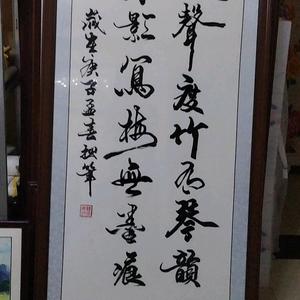 聲度竹為琴韻
影寫梅無墨痕
歲在庚子孟春 筆